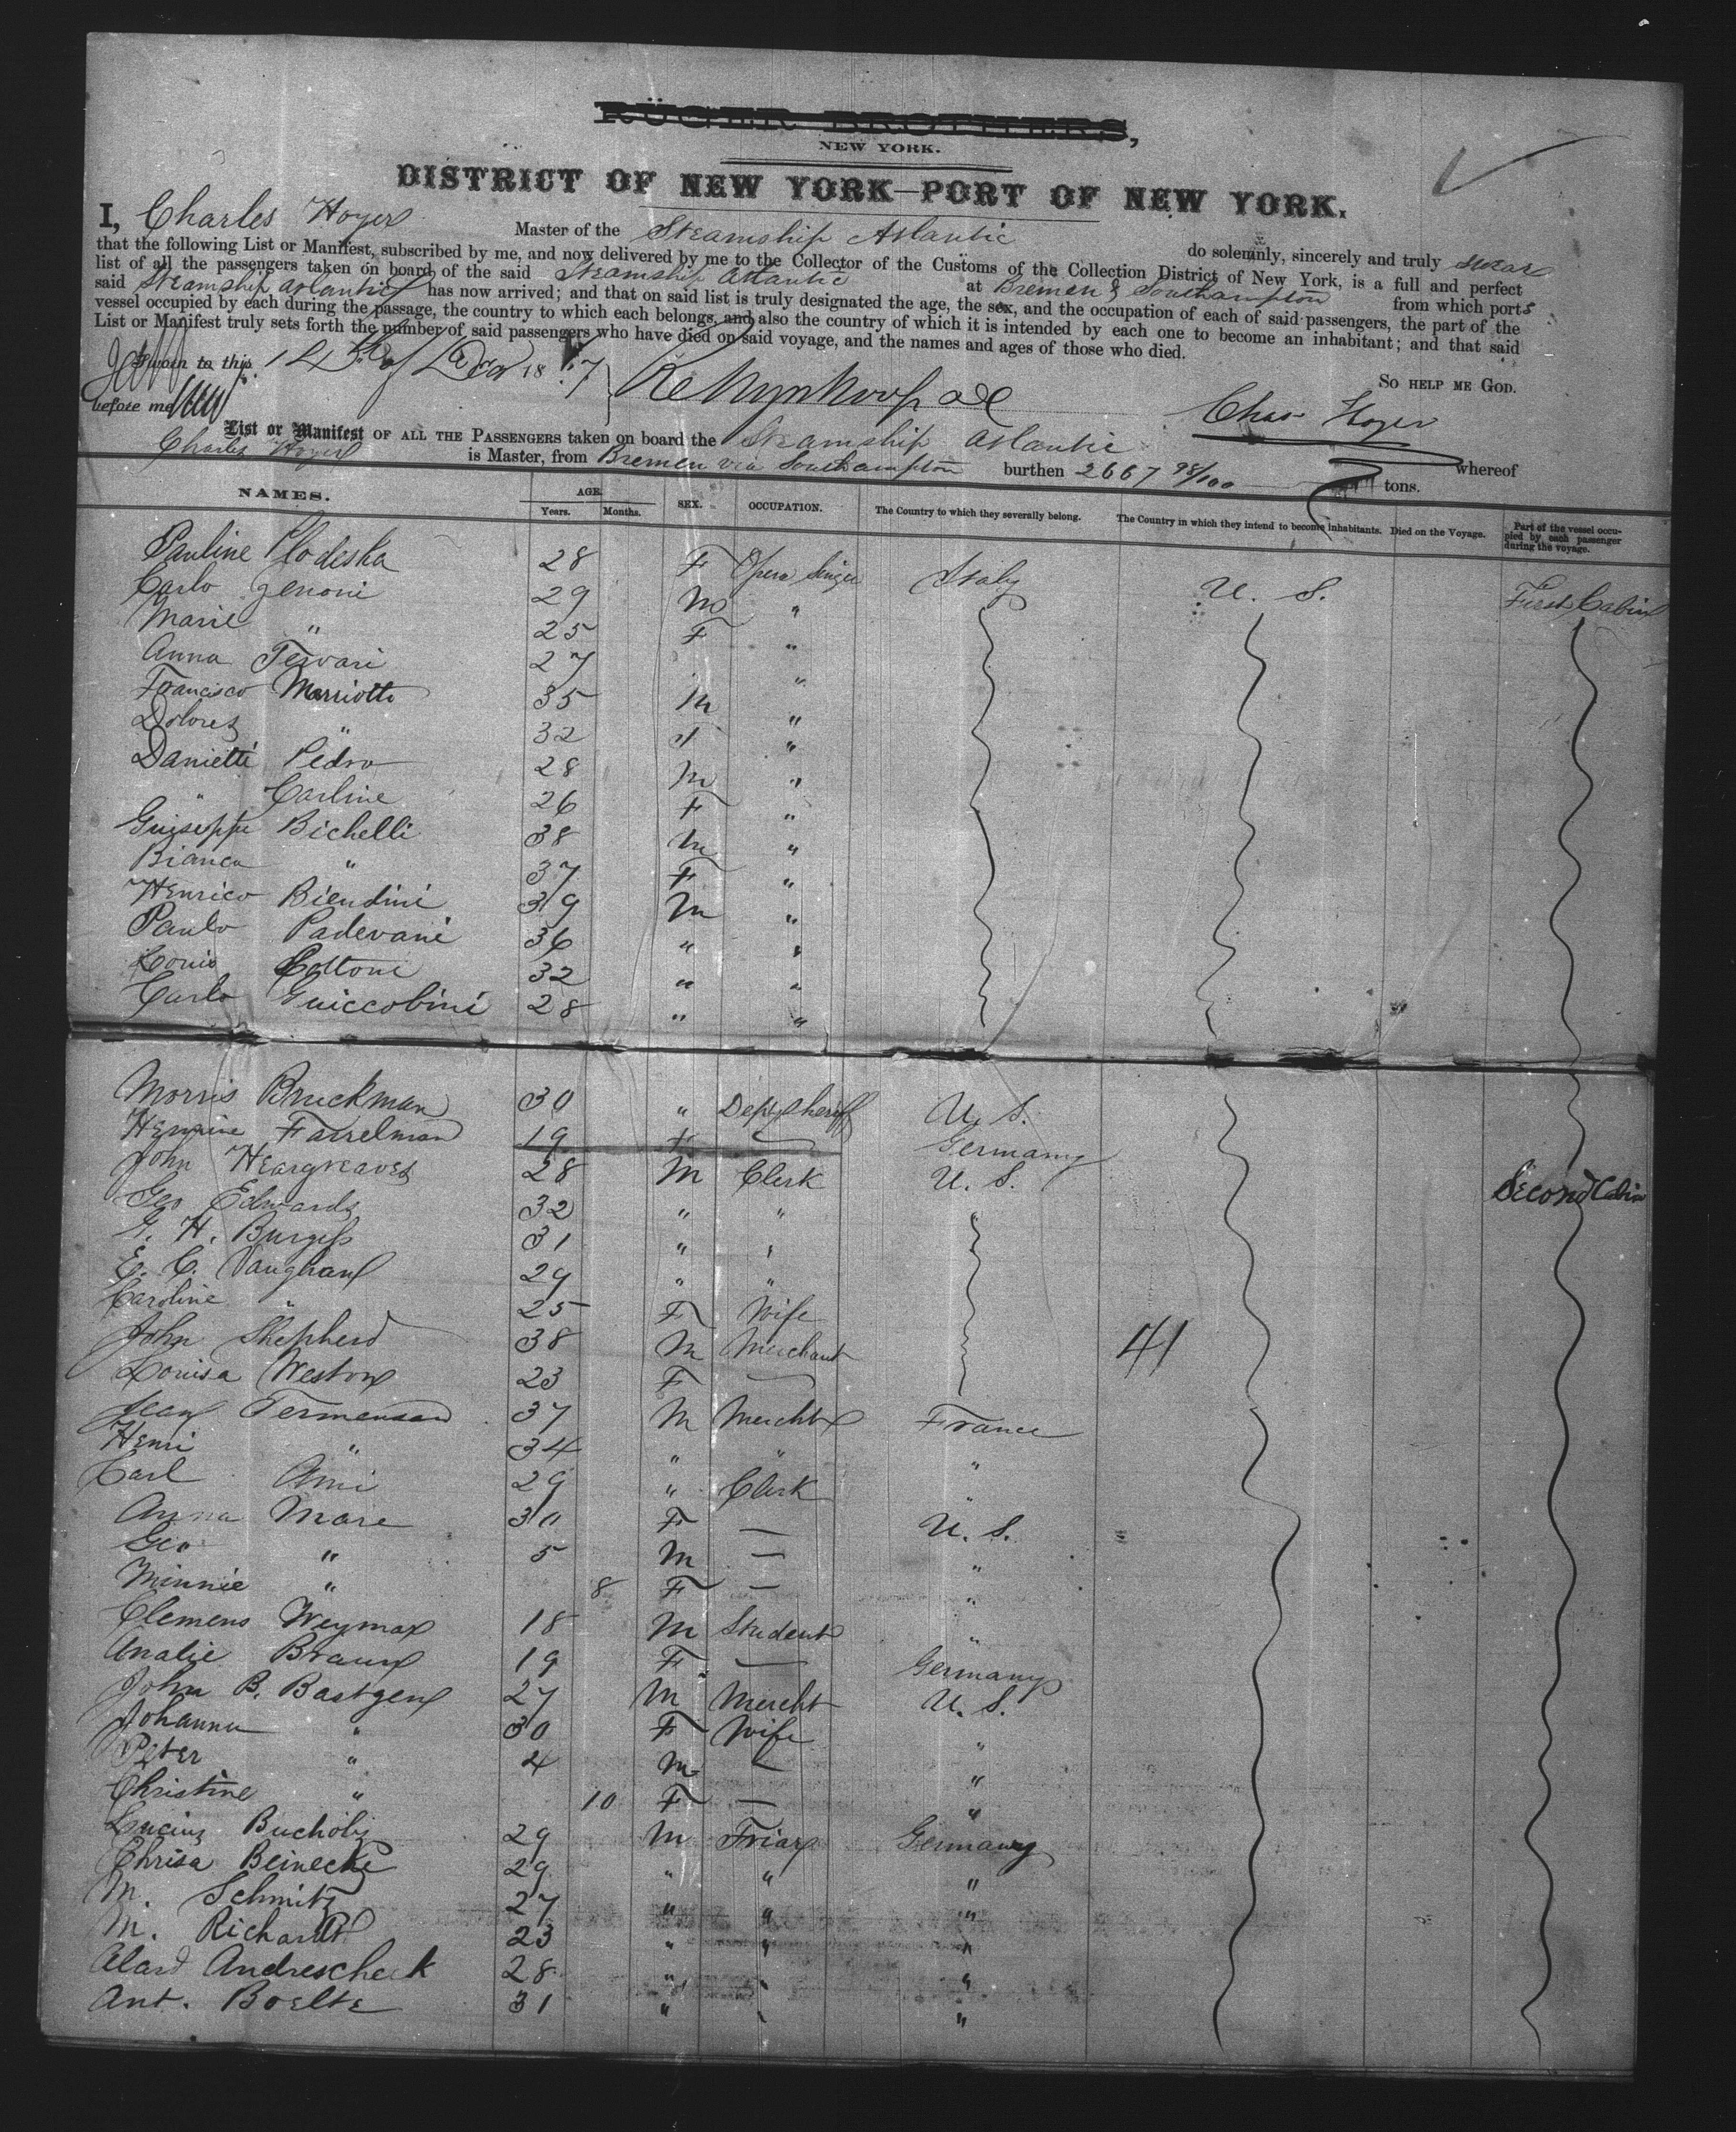 RÜGER BROTHERS,
NEW YORK.
DISTRICT OF NEW YORK—PORT OF NEW YORK.
I, Charles Hoyer Master of the Steamship Atlantic do solemnly, sincerely and truly swear
that the following List or Manifest, subscribed by me, and now delivered by me to the Collector of the Customs of the Collection District of New York, is a full and perfect
list of all the passengers taken on board of the said Steamship Atlantic at Bremen & Southampton from which ports
said Steamship Atlantic has now arrived; and that on said list is truly designated the age, the sex, and the occupation of each of said passengers, the part of the
vessel occupied by each during the passage, the country to which each belongs, and also the country of which it is intended by each one to become an inhabitant; and that said
List or Manifest truly sets forth the number of said passengers who have died on said voyage, and the names and ages of those who died.
SO HELP ME GOD.
Sworn to this 14th of 18 7
before me
Chas Hoyer
List or Manifest OF ALL THE PASSENGERS taken on board the Steamship Atlantic whereof
Charles Hoyer is Master, from Bremen via Southampton burthen 2667 98/100 tons.
NAMES. AGE. Years. Months. SEX. OCCUPATION. The Country to which they severally belong. The Country in which they intend to become inhabitants. Died on the Voyage. Part of the vessel occupied by each passenger during the voyage.
Pauline Plodeska 28 F Opera Singer Italy U. S. First Cabin
Carlo Zenoni 29 M "
Marie " 25 F "
Anna Tervari 27 "
Francisco Marriotti 35 M "
Dolores " 32 "
Danietti Pedro 28 M "
" Carline 26 F "
Guiseppe Bichelli 38 M "
Bianca " 37 F "
Henrico Biendini 39 M "
Paulo Padevani 36 " "
Louis Coltoni 32 " "
Carlo Guiccobini 28 " "
Morris Bruckman 30 " Dept Sheriff U. S.
Hermine Fasselman 19 F Germany
John Heargreaves 28 M Clerk U. S. Second Cabin
Geo Edwards 32 " "
G. H. Burgess 31 " "
E. C. Vaughan 29 " "
Caroline " 25 F Wife
John Shepherd 38 M Merchant 41
Louisa Weston 23 F
Jean Termensen 37 M Mercht France
Henri " 34 " " "
Carl Ami 29 " Clerk "
Anna Mare 30 F — U. S.
Geo " 5 M — "
Minnie " 8 F — "
Clemens Weymar 18 M Student "
Analie Braun 19 F — Germany
John B. Bastgen 27 M Mercht U. S.
Johanna " 30 F Wife "
Peter " 4 M — "
Christine " 10 F — "
Lucius Bucholz 29 M Friar Germany
Chrisa Beinecke 29 " " "
M. Schmitz 27 " " "
M. Richardt 23 " " "
Alard Andrescheck 28 " " "
Ant. Boelte 31 " " "